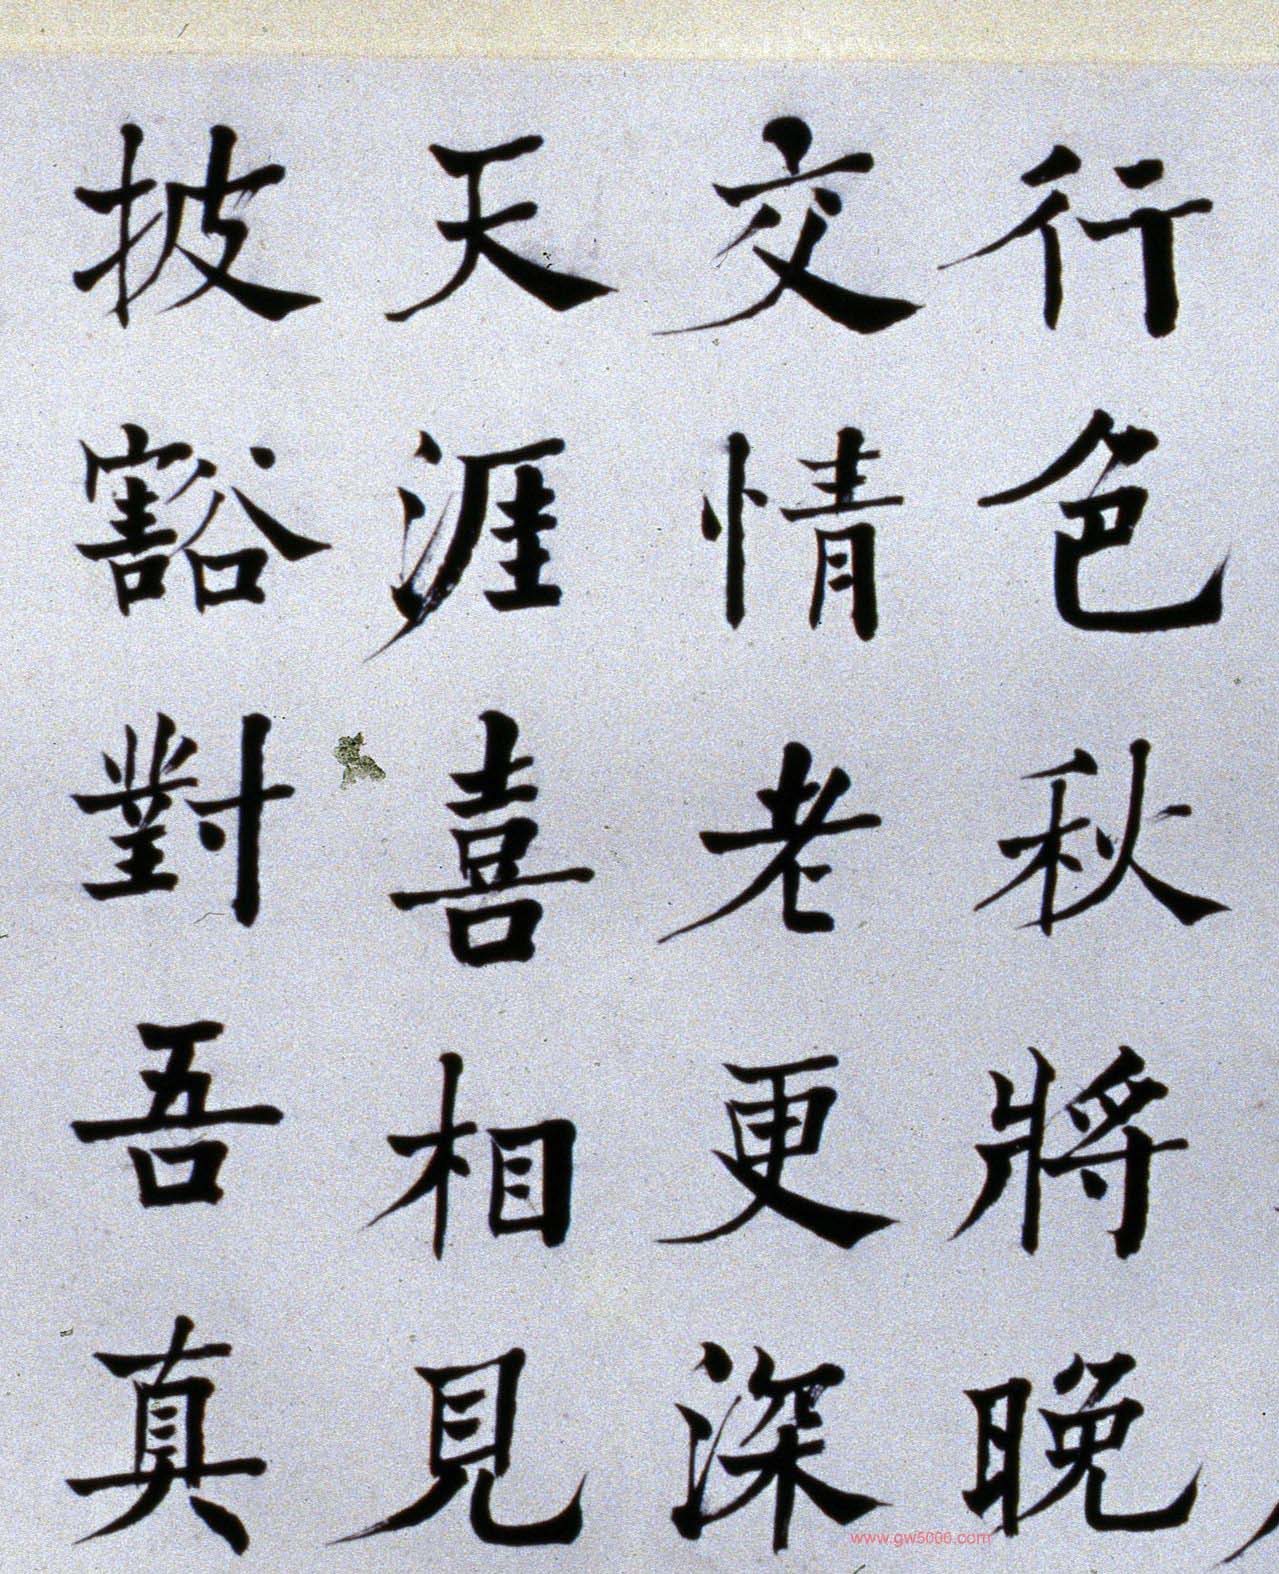 行色秋將晚
交情老更深
天涯喜相見
披豁對吾真
www.gw5000.com